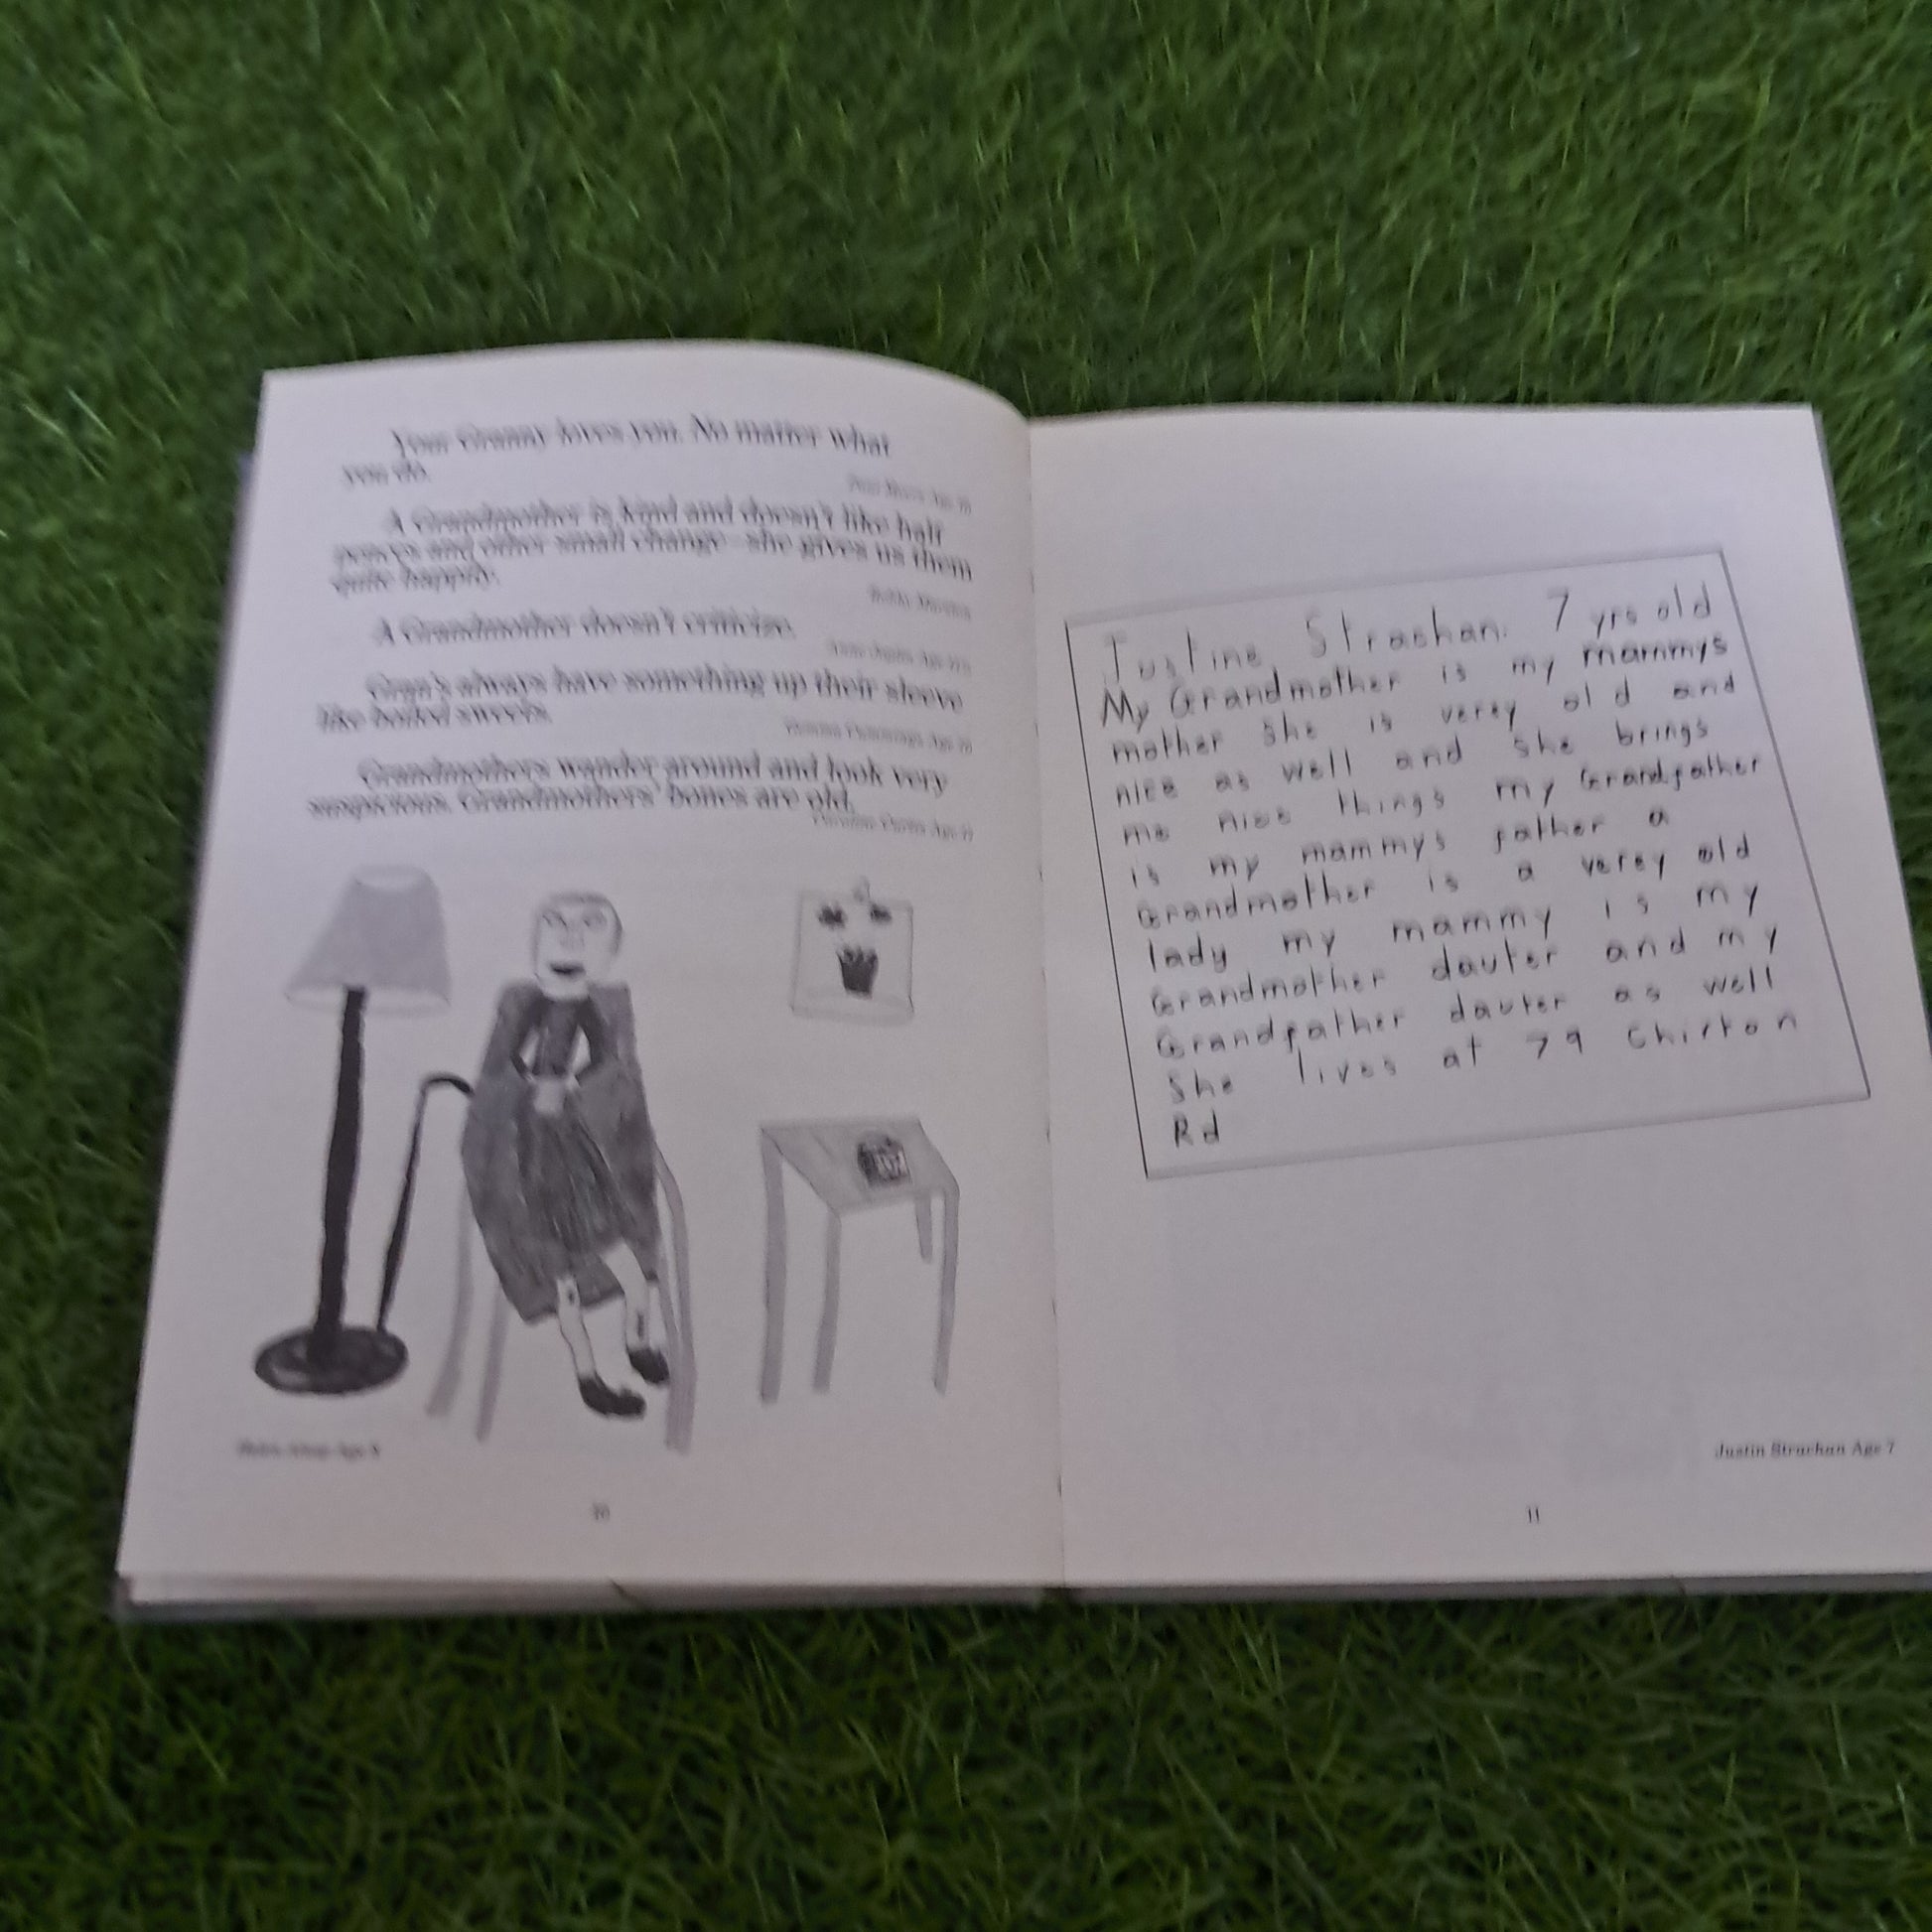 Your Granny loves you. No matter what
you do.
A Grandmother is kind and doesn't like half
pennys and other small change - she gives us them
quite happily.
A Grandmother doesn't criticize.
Gran's always have something up their sleeve
like boiled sweets.
Grandmothers wander around and look very
suspicious. Grandmothers' bones are old.
10
Justine Strachan. 7 yrs old
My Grandmother is my mammys
mother she is verey old and
nice as well and she brings
me nice things my Grandfather
is my mammys father a
Grandmother is a verey old
lady my mammy is my
Grandmother dauter and my
Grandfather dauter as well
She lives at 79 Chirton
Rd
Justin Strachan Age 7
11